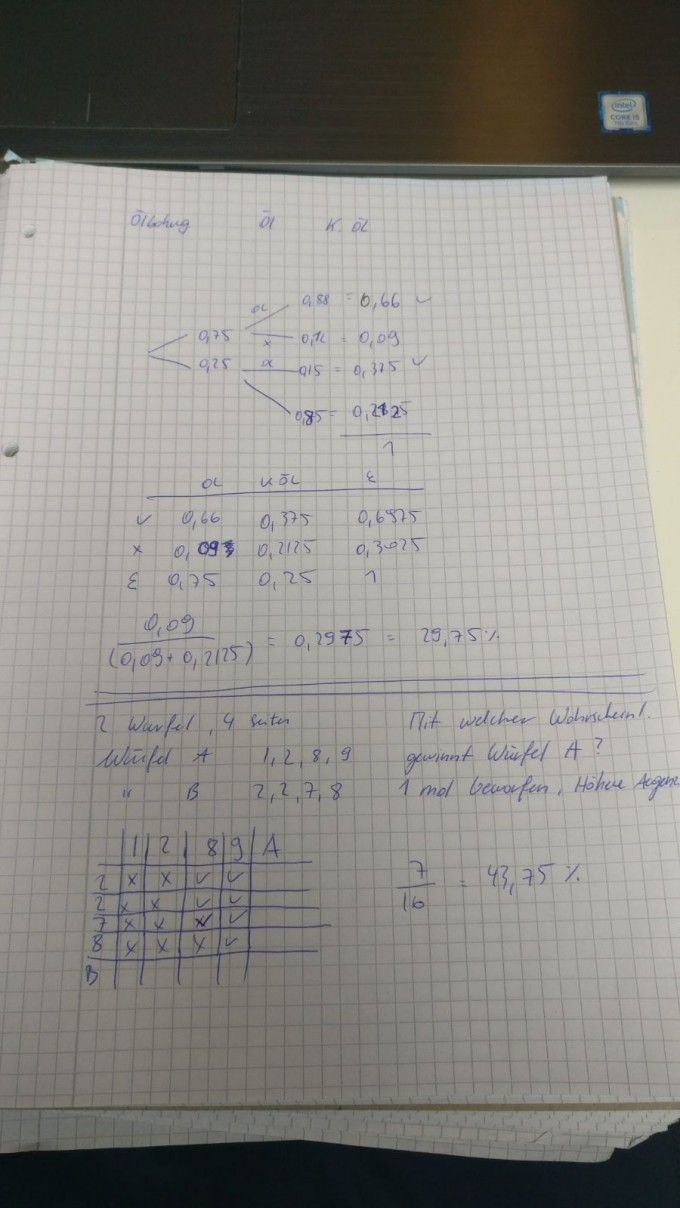 intel
CORE i5
7th Gen
Ölbohrung Öl K. ÖL
ÖL 0,88 = 0,66 ✓
0,75 x 0,12 = 0,09
0,25 Öl 0,15 = 0,375 ✓
0,85 = 0,2125
1
ÖL K ÖL Σ
✓ 0,66 0,375 0,6975
x 0,09 0,2125 0,3025
Σ 0,75 0,25 1
0,09
(0,09 + 0,2125) = 0,2975 = 29,75 %
2 Würfel, 4 Seiten Mit welcher Wahrscheinl.
Würfel A 1, 2, 8, 9 gewinnt Würfel A ?
" B 2, 2, 7, 8 1 mal geworfen, Höhere Augenz
1 2 8 9 A
2 x x ✓ ✓
2 x x ✓ ✓
7 x x ✓ ✓
8 x x x ✓
B
7
16 = 43,75 %